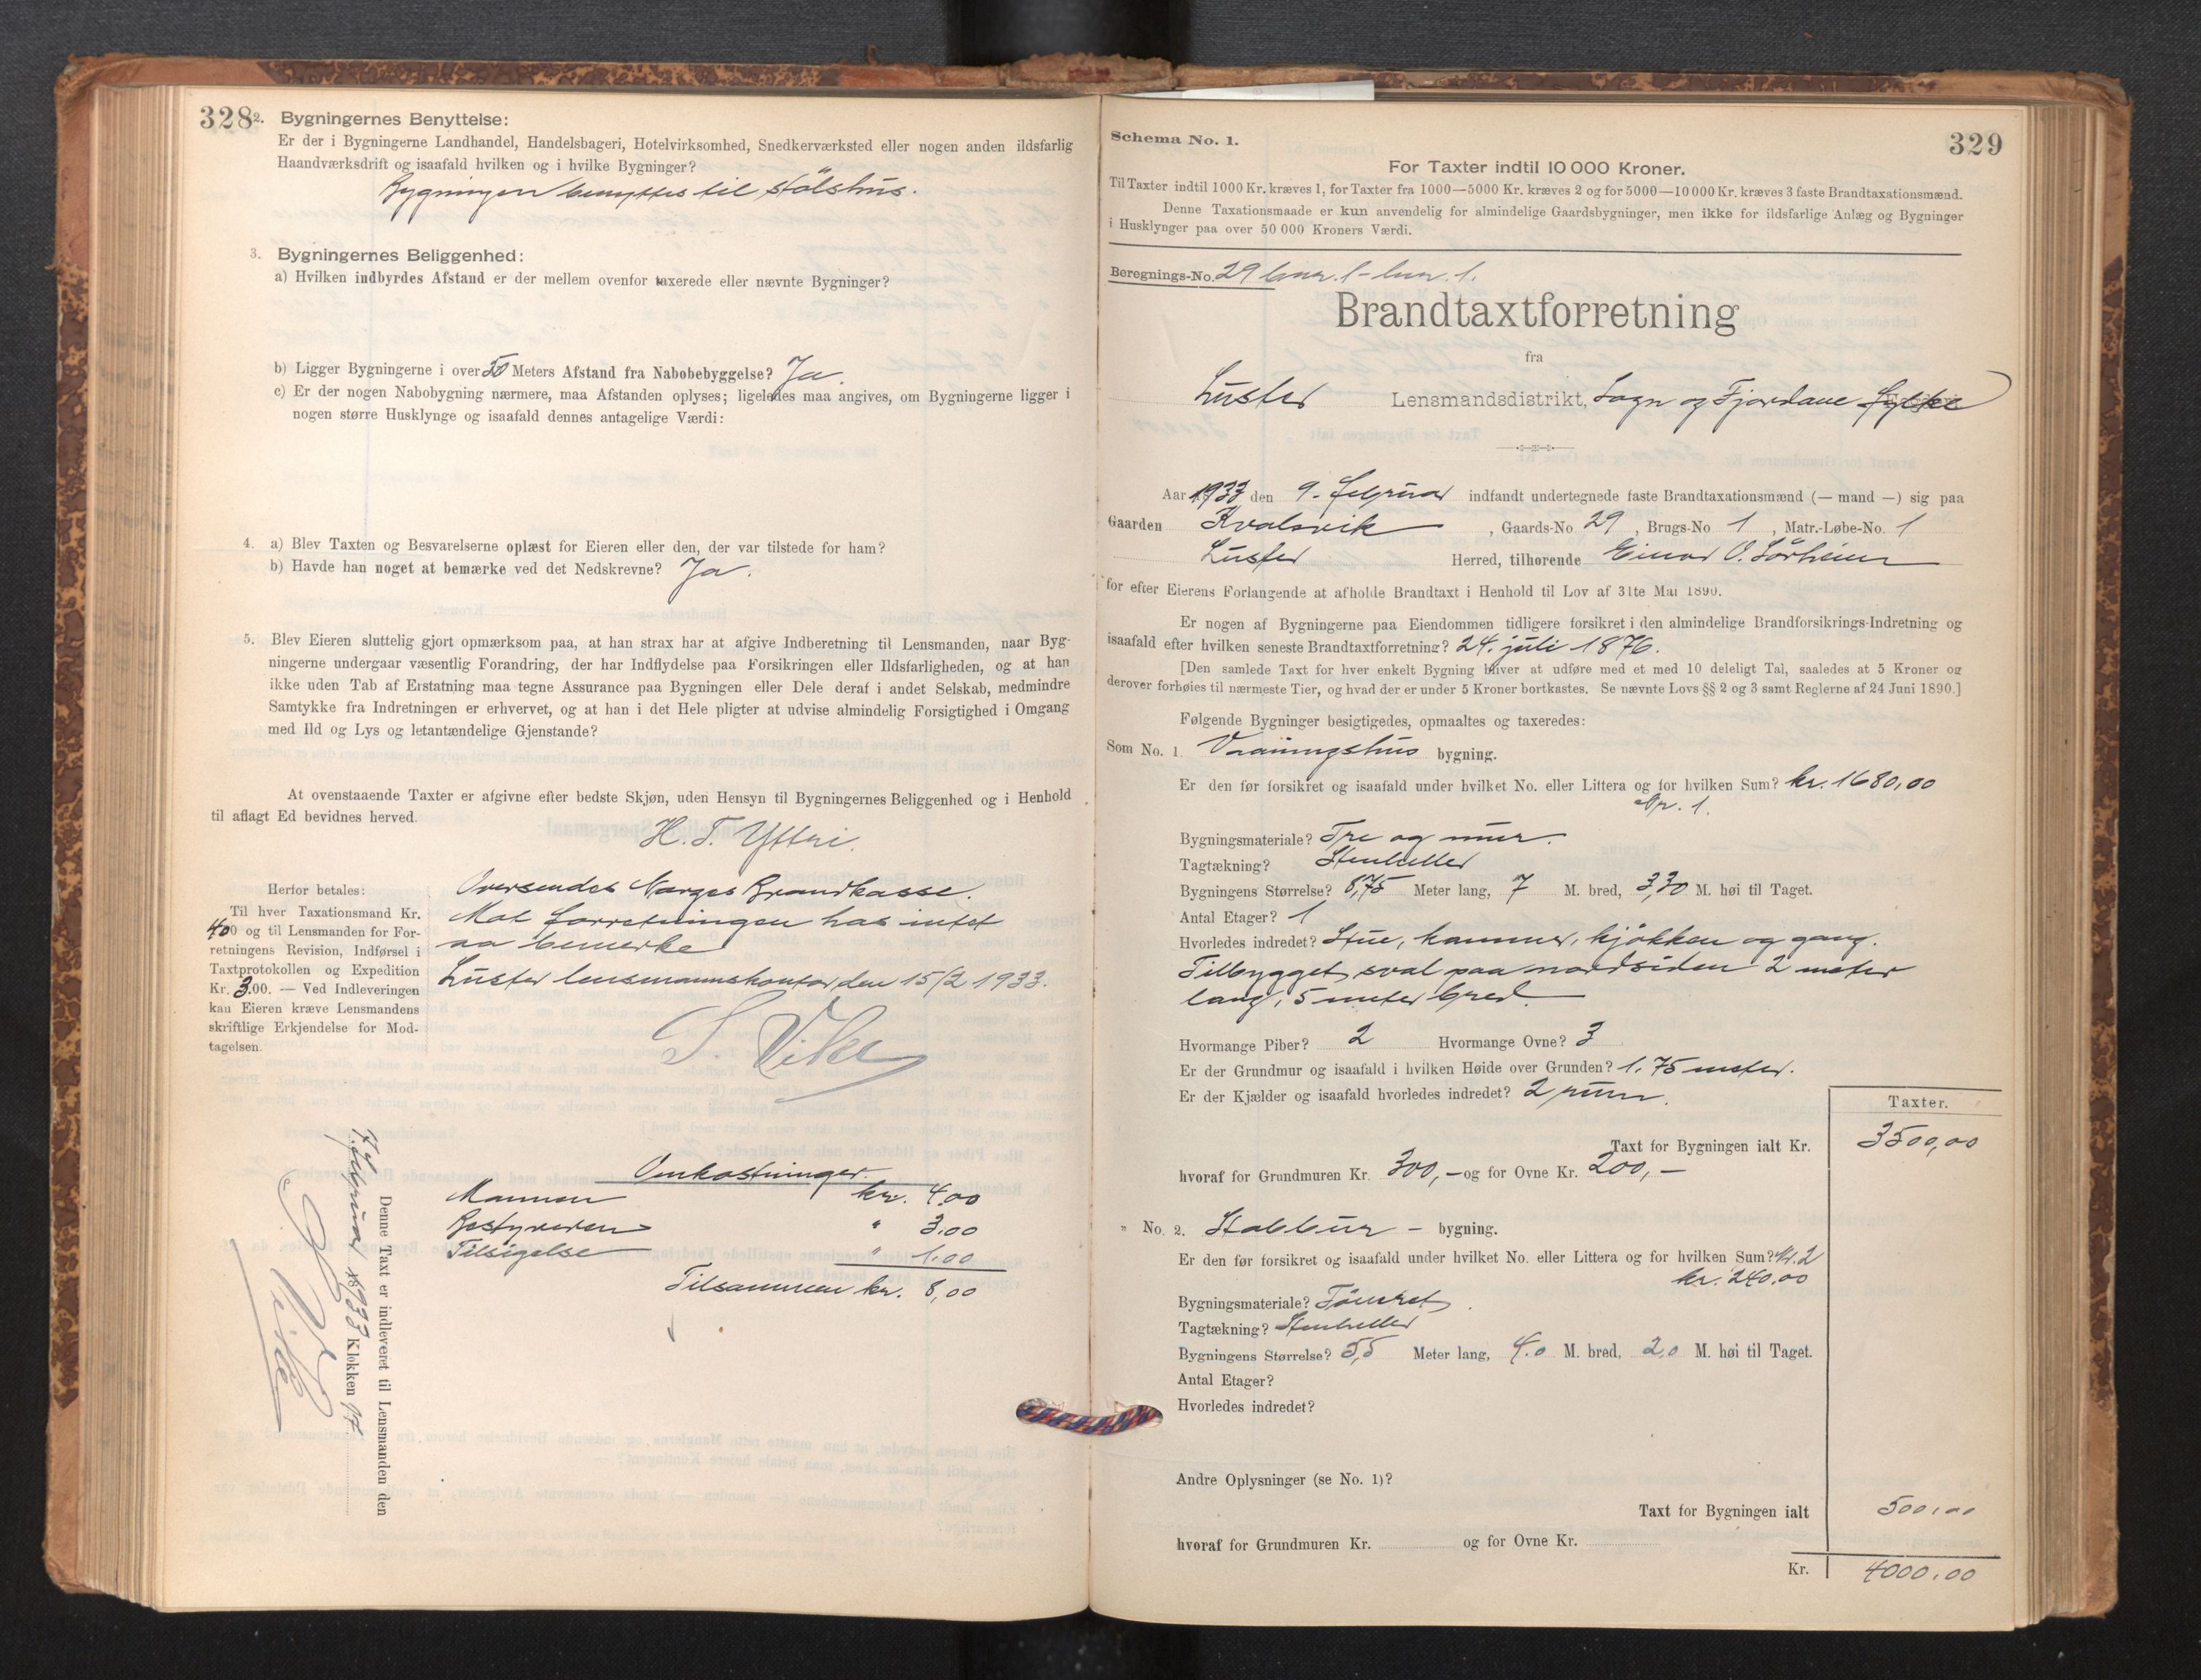 328
2. Bygningernes Benyttelse:
Er der i Bygningerne Landhandel, Handelsbageri, Hotelvirksomhed, Snedkerværksted eller nogen anden ildsfarlig
Haandværksdrift og isaafald hvilken og i hvilke Bygninger?
Bygningen benyttes til stölshus.
3. Bygningernes Beliggenhed:
a) Hvilken indbyrdes Afstand er der mellem ovenfor taxerede eller nævnte Bygninger?
b) Ligger Bygningerne i over 50 Meters Afstand fra Nabobebyggelse? Ja.
c) Er der nogen Nabobygning nærmere, maa Afstanden oplyses; ligeledes maa angives, om Bygningerne ligger i
nogen større Husklynge og isaafald dennes antagelige Værdi:
4. a) Blev Taxten og Besvarelserne oplæst for Eieren eller den, der var tilstede for ham?
b) Havde han noget at bemærke ved det Nedskrevne? Ja.
5. Blev Eieren sluttelig gjort opmærksom paa, at han strax har at afgive Indberetning til Lensmanden, naar Byg-
ningerne undergaar væsentlig Forandring, der har Indflydelse paa Forsikringen eller Ildsfarligheden, og at han
ikke uden Tab af Erstatning maa tegne Assurance paa Bygningen eller Dele deraf i andet Selskab, medmindre
Samtykke fra Indretningen er erhvervet, og at han i det Hele pligter at udvise almindelig Forsigtighed i Omgang
med Ild og Lys og letantændelige Gjenstande?
At ovenstaaende Taxter er afgivne efter bedste Skjøn, uden Hensyn til Bygningernes Beliggenhed og i Henhold
til aflagt Ed bevidnes herved.
H. T. Yttri.
Herfor betales:
Til hver Taxationsmand Kr.
4,00 og til Lensmanden for For-
retningens Revision, Indførsel i
Taxtprotokollen og Expedition
Kr. 3.00. — Ved Indleveringen
kan Eieren kræve Lensmandens
skriftlige Erkjendelse for Mod-
tagelsen.
Oversendes Norges Brandkasse.
Mot forretningen has intet
aa bemerke
Luster lensmannskontor den 15/2 1933.
S. Vike
Denne Taxt er indleveret til Lensmanden den
17 februar 1933 Klokken 17
S. Vike
Omkostninger.
Mannen kr. 4,00
Bestyreren " 3.00
Tilsigelse " 1.00
Tilsammen kr. 8,00
329
Schema No. 1.
For Taxter indtil 10 000 Kroner.
Til Taxter indtil 1000 Kr. kræves 1, for Taxter fra 1000—5000 Kr. kræves 2 og for 5000—10 000 Kr. kræves 3 faste Brandtaxationsmænd.
Denne Taxationsmaade er kun anvendelig for almindelige Gaardsbygninger, men ikke for ildsfarlige Anlæg og Bygninger
i Husklynger paa over 50 000 Kroners Værdi.
Beregnings-No. 29 bnr. 1 - lnr. 1.
Brandtaxtforretning
fra
Luster Lensmandsdistrikt, Sogn og Fjordane Fylke
Aar 1933 den 9. februar indfandt undertegnede faste Brandtaxationsmænd (— mand —) sig paa
Gaarden Kvalsvik, Gaards-No 29, Brugs-No 1, Matr.-Løbe-No. 1
Luster Herred, tilhørende Einar O. Sörheim
for efter Eierens Forlangende at afholde Brandtaxt i Henhold til Lov af 31te Mai 1890.
Er nogen af Bygningerne paa Eiendommen tidligere forsikret i den almindelige Brandforsikrings-Indretning og
isaafald efter hvilken seneste Brandtaxtforretning? 24. juli 1876.
[Den samlede Taxt for hver enkelt Bygning bliver at udføre med et med 10 deleligt Tal, saaledes at 5 Kroner og
derover forhøies til nærmeste Tier, og hvad der er under 5 Kroner bortkastes. Se nævnte Lovs §§ 2 og 3 samt Reglerne af 24 Juni 1890.]
Følgende Bygninger besigtigedes, opmaaltes og taxeredes:
Som No. 1. Vaaningshus bygning.
Er den før forsikret og isaafald under hvilket No. eller Littera og for hvilken Sum? kr. 1680,00
Nr. 1.
Bygningsmateriale? Tre og mur.
Tagtækning? Stenheller
Bygningens Størrelse? 8,75 Meter lang, 7 M. bred, 3,30 M. høi til Taget.
Antal Etager? 1
Hvorledes indredet? Stue, kammer, kjøkken og gang.
Tilbygget sval paa nordsiden 2 meter
lang, 5 meter bred
Hvormange Piber? 2 Hvormange Ovne? 3
Er der Grundmur og isaafald i hvilken Høide over Grunden? 1,75 meter.
Er der Kjælder og isaafald hvorledes indredet? 2 rum.
Taxter.
Taxt for Bygningen ialt Kr. 3500,00
hvoraf for Grundmuren Kr. 300,— og for Ovne Kr. 200,—
" No. 2. Stabbur - bygning.
Er den før forsikret og isaafald under hvilket No. eller Littera og for hvilken Sum? Nr. 2
kr. 240.00
Bygningsmateriale? Tömret.
Tagtækning? Stenheller
Bygningens Størrelse? 5,5 Meter lang, 4.0 M. bred, 2,0 M. høi til Taget.
Antal Etager?
Hvorledes indredet?
Andre Oplysninger (se No. 1)?
Taxt for Bygningen ialt 500,00
hvoraf for Grundmuren Kr. og for Ovne Kr.
Kr. 4000.00